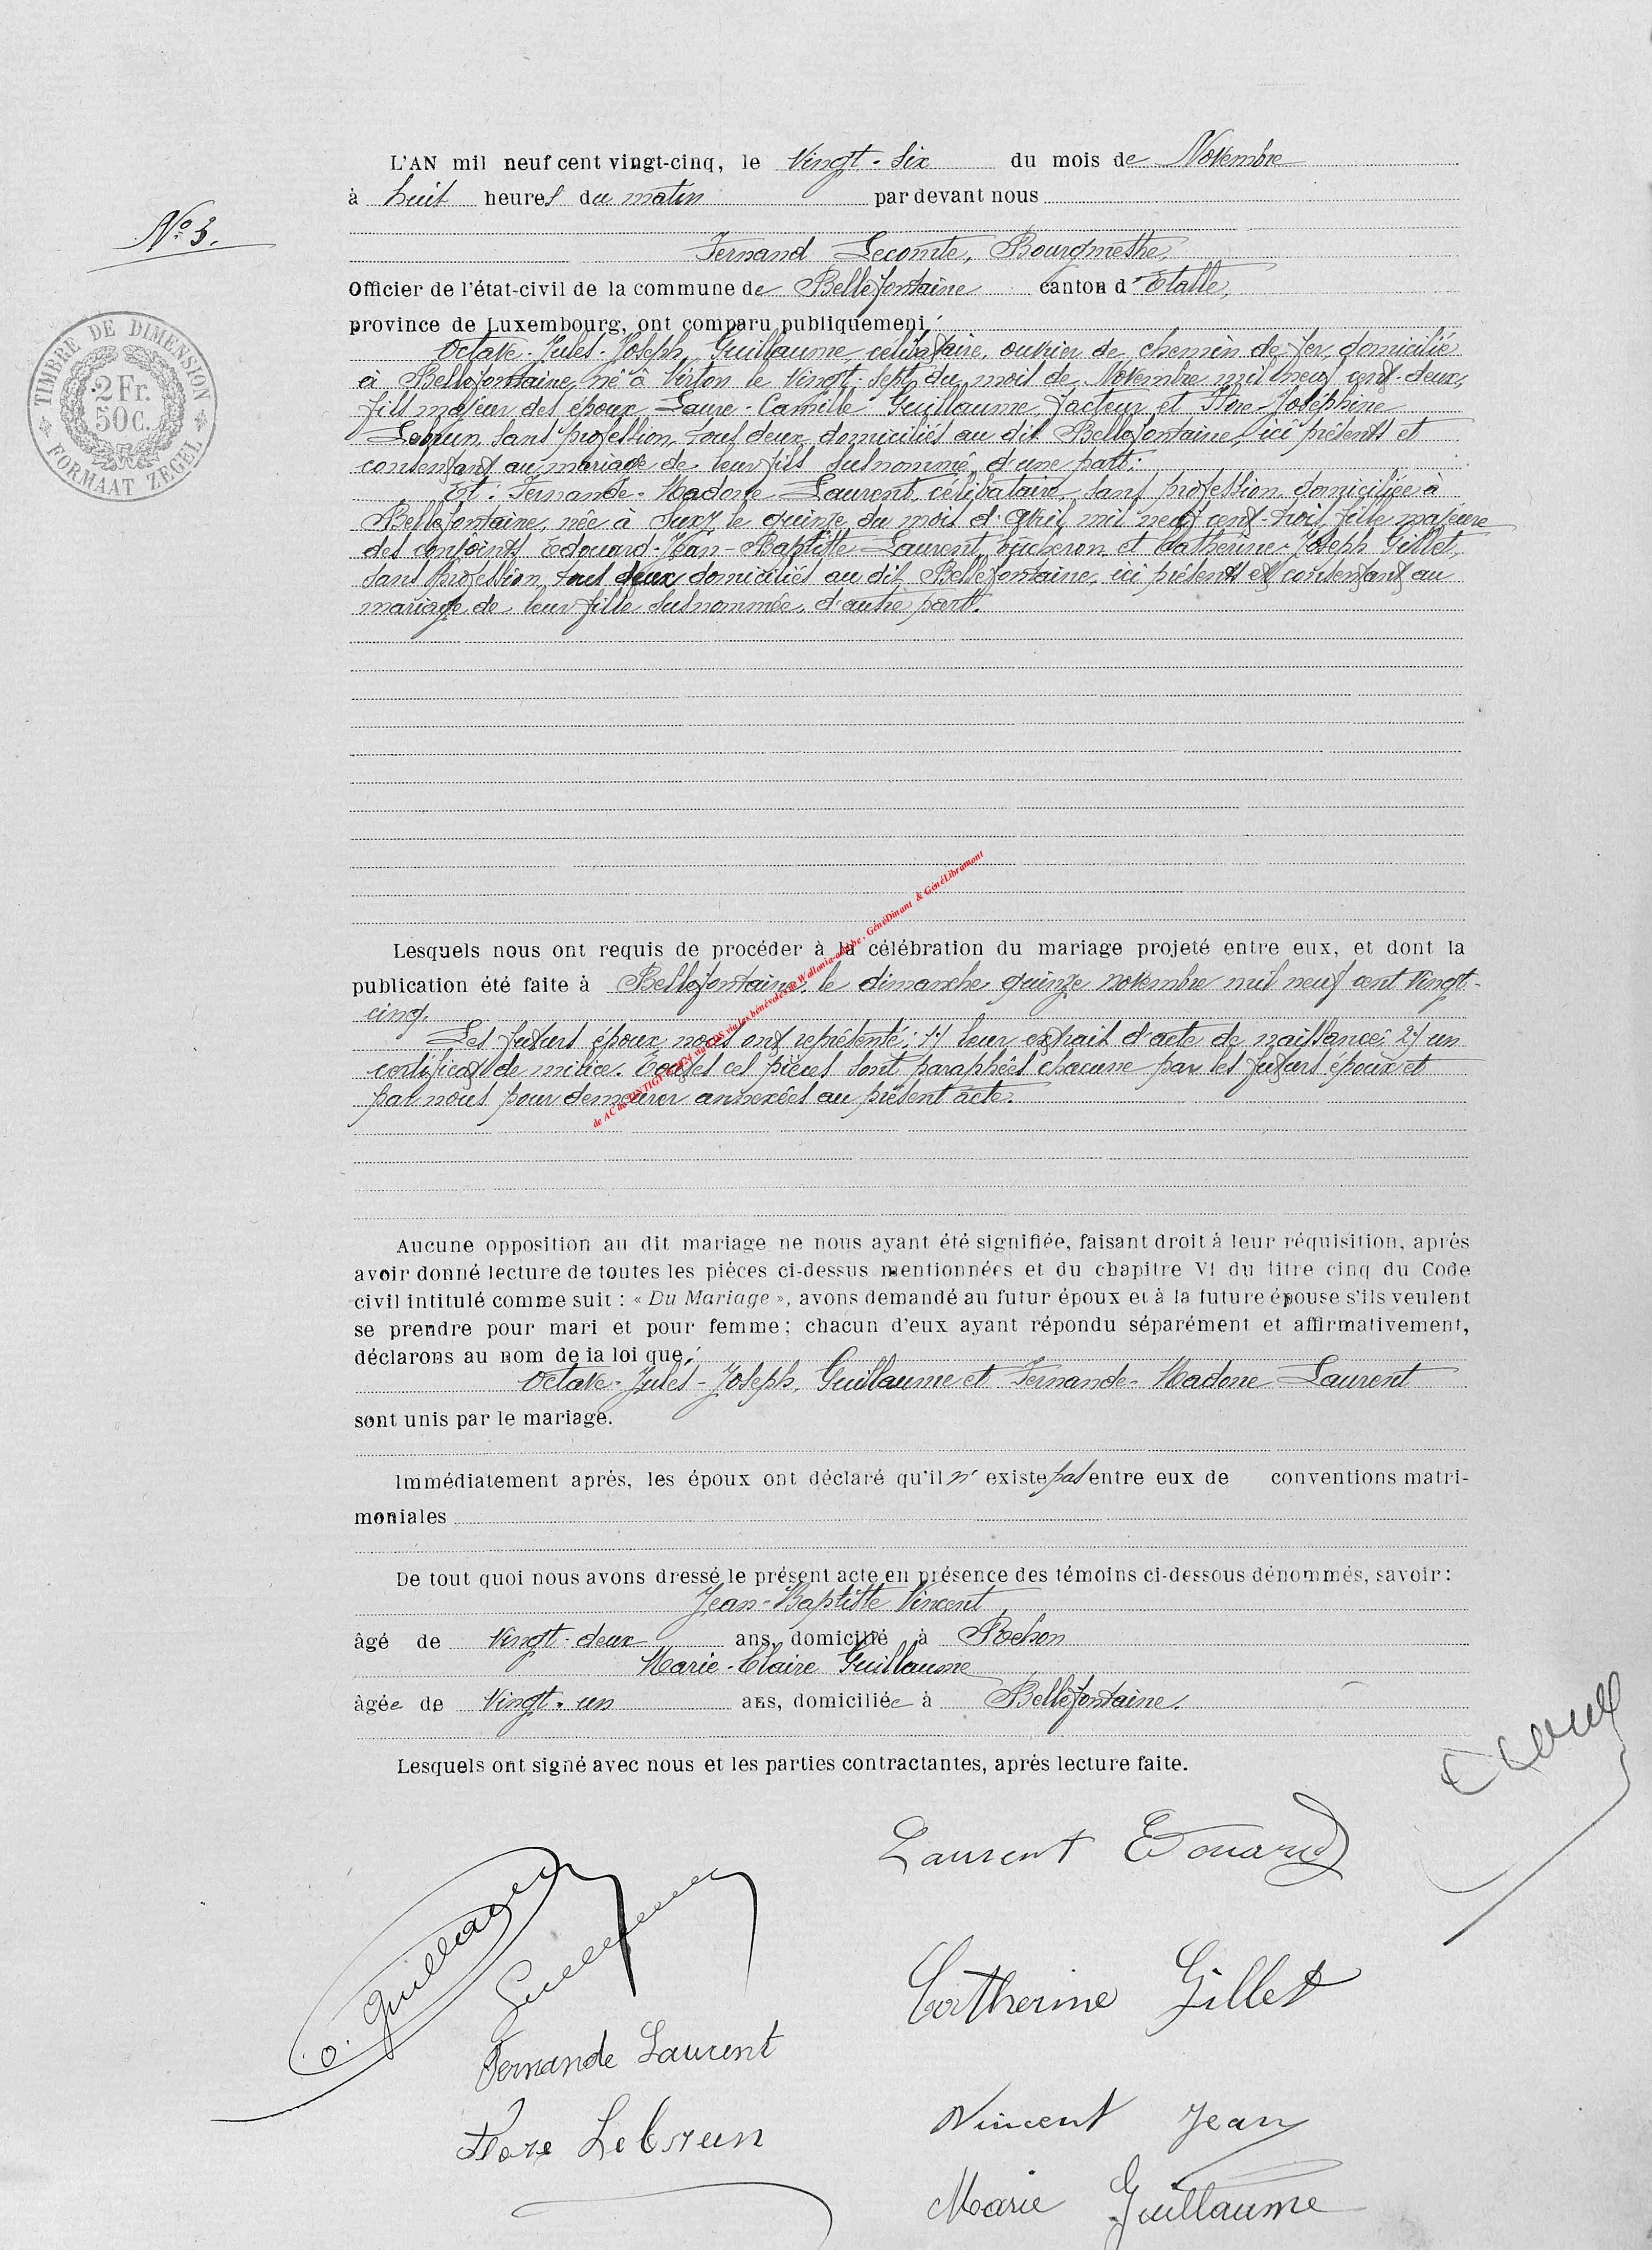 L'AN mil neuf cent vingt-cinq, le Vingt-six du mois de Novembre
à huit heures du matin par devant nous
N° 3.
Fernand Lecomte, Bourgmestre,
Officier de l'état-civil de la commune de Bellefontaine canton d'Etalle,
province de Luxembourg, ont comparu publiquement :
TIMBRE DE DIMENSION
2 Fr.
50 c.
FORMAAT ZEGEL
Octave-Jules-Joseph Guillaume célibataire, ouvrier de chemin de fer, domicilié
à Bellefontaine, né à Virton le vingt-sept du mois de Novembre mil neuf cent-deux,
fils majeur des époux Laure-Camille Guillaume, facteur et Flore-Joséphine
Lebrun sans profession, tous deux domiciliés au dit Bellefontaine, ici présents et
consentant au mariage de leur fils susnommé, d'une part;
Et: Fernande-Madone Laurent, célibataire, sans profession, domiciliée à
Bellefontaine, née à Suxy le quinze du mois d'Avril mil neuf cent-trois, fille majeure
des conjoints Edouard-Jean-Baptiste Laurent, bûcheron et Catherine-Joseph Gillet,
sans profession, tous deux domiciliés au dit Bellefontaine, ici présents et consentant au
mariage de leur fille susnommée, d'autre part.
Lesquels nous ont requis de procéder à la célébration du mariage projeté entre eux, et dont la
publication été faite à Bellefontaine, le dimanche quinze novembre mil neuf cent vingt-
cinq.
Les futurs époux nous ont représenté: 1°/ leur extrait d'acte de naissance; 2°/ un
certificat de milice. Toutes ces pièces sont paraphées chacune par les futurs époux et
par nous pour demeurer annexées au présent acte.
Aucune opposition au dit mariage ne nous ayant été signifiée, faisant droit à leur réquisition, après
avoir donné lecture de toutes les pièces ci-dessus mentionnées et du chapitre VI du titre cinq du Code
civil intitulé comme suit : « Du Mariage », avons demandé au futur époux et à la future épouse s'ils veulent
se prendre pour mari et pour femme; chacun d'eux ayant répondu séparément et affirmativement,
déclarons au nom de la loi que:
Octave-Jules-Joseph Guillaume et Fernande-Madone Laurent
sont unis par le mariage.
Immédiatement après, les époux ont déclaré qu'il n'existe pas entre eux de conventions matri-
moniales
De tout quoi nous avons dressé le présent acte en présence des témoins ci-dessous dénommés, savoir :
Jean-Baptiste Vincent
âgé de vingt-deux ans, domicilié à Rehon
Marie-Claire Guillaume
âgée de vingt-un ans, domiciliée à Bellefontaine.
Lesquels ont signé avec nous et les parties contractantes, après lecture faite.
Laurent Edouard
O. Guillaume
Guillaume
Catherine Gillet
Fernande Laurent
Vincent Jean
Flore Lebrun
Marie Guillaume